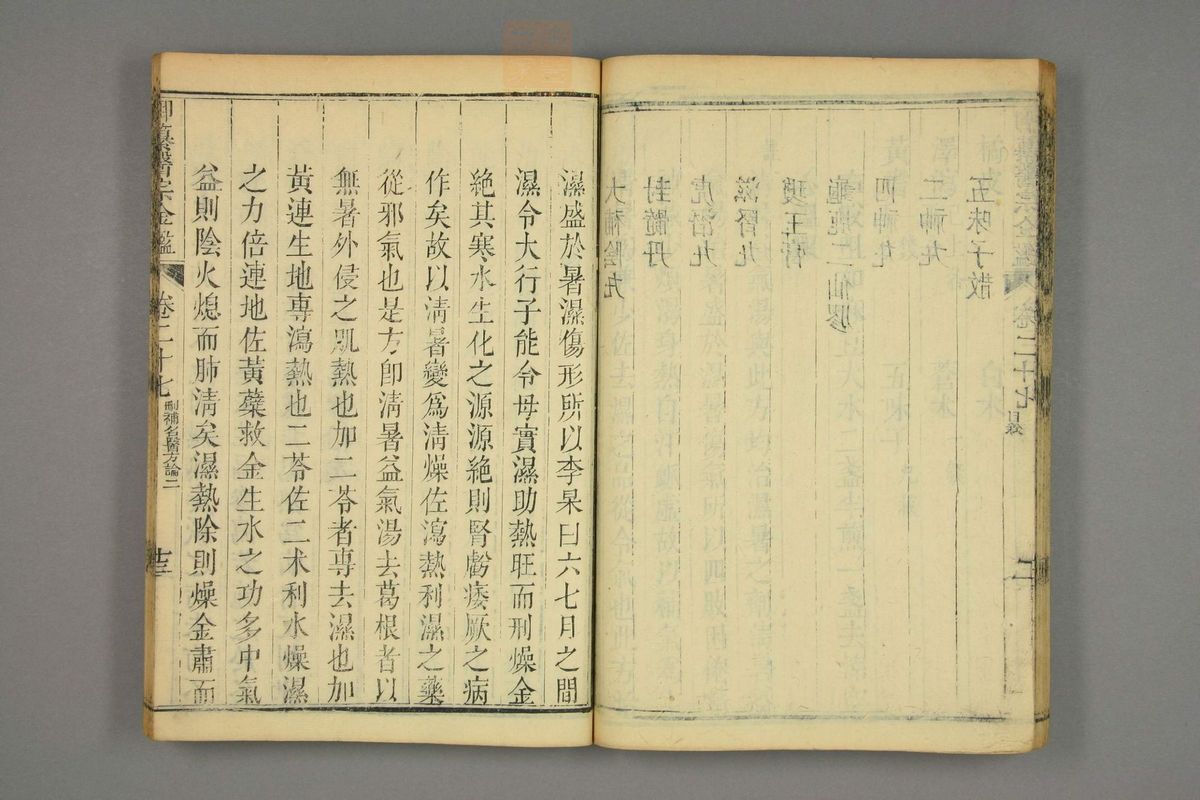 御纂醫宗金鑑 卷二十七 目錄
五味子散
二神丸
四神丸
龜鹿二仙膠
瓊玉膏
滋腎丸
虎潛丸
封髓丹
大補陰丸
濕盛於暑濕傷形所以李杲曰六七月之間
濕令大行子能令母實濕助熱旺而刑燥金
絕其寒水生化之源源絕則腎虧痿厥之病
作矣故以淸暑變爲淸燥佐瀉熱利濕之藥
從邪氣也是方卽淸暑益氣湯去葛根者以
無暑外侵之肌熱也加二苓者專去濕也加
黃連生地專瀉熱也二苓佐二朮利水燥濕
之力倍連地佐黃蘗救金生水之功多中氣
益則陰火熄而肺淸矣濕熱除則燥金肅而
御纂醫宗金鑑 卷二十七 刪補名醫方論二 十三